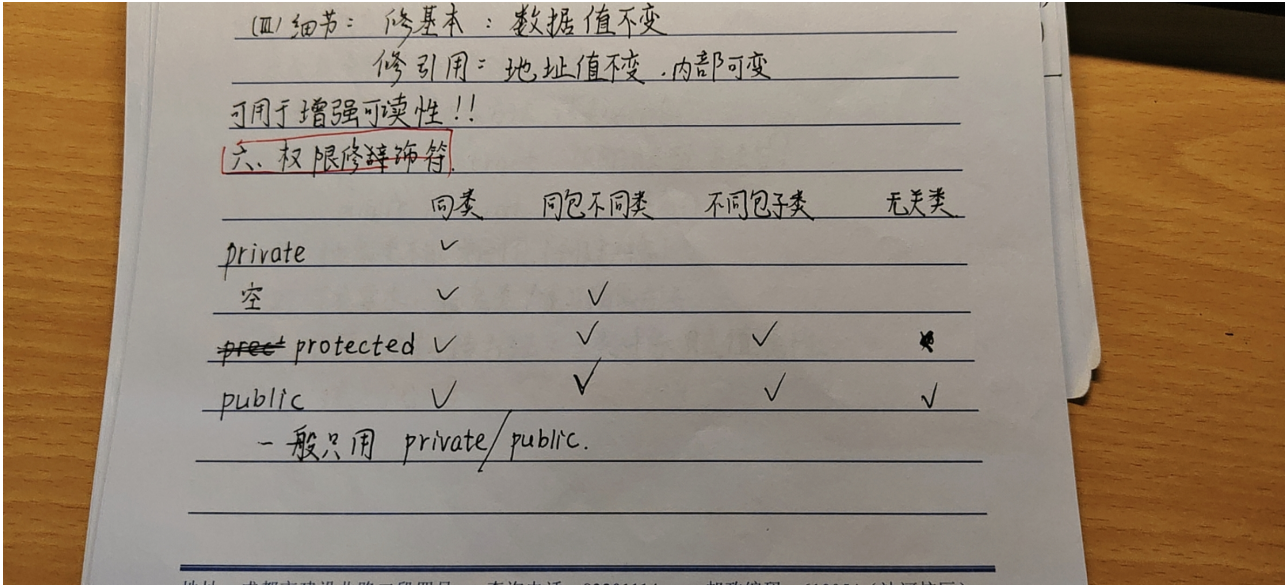 (Ⅲ) 细节: 修基本: 数据值不变
修引用: 地址值不变.内部可变
可用于增强可读性!!
六、权限修饰符.
同类 同包不同类 不同包子类 无关类.
private ✓
空 ✓ ✓
protected ✓ ✓ ✓
public ✓ ✓ ✓ ✓
一般只用 private/public.